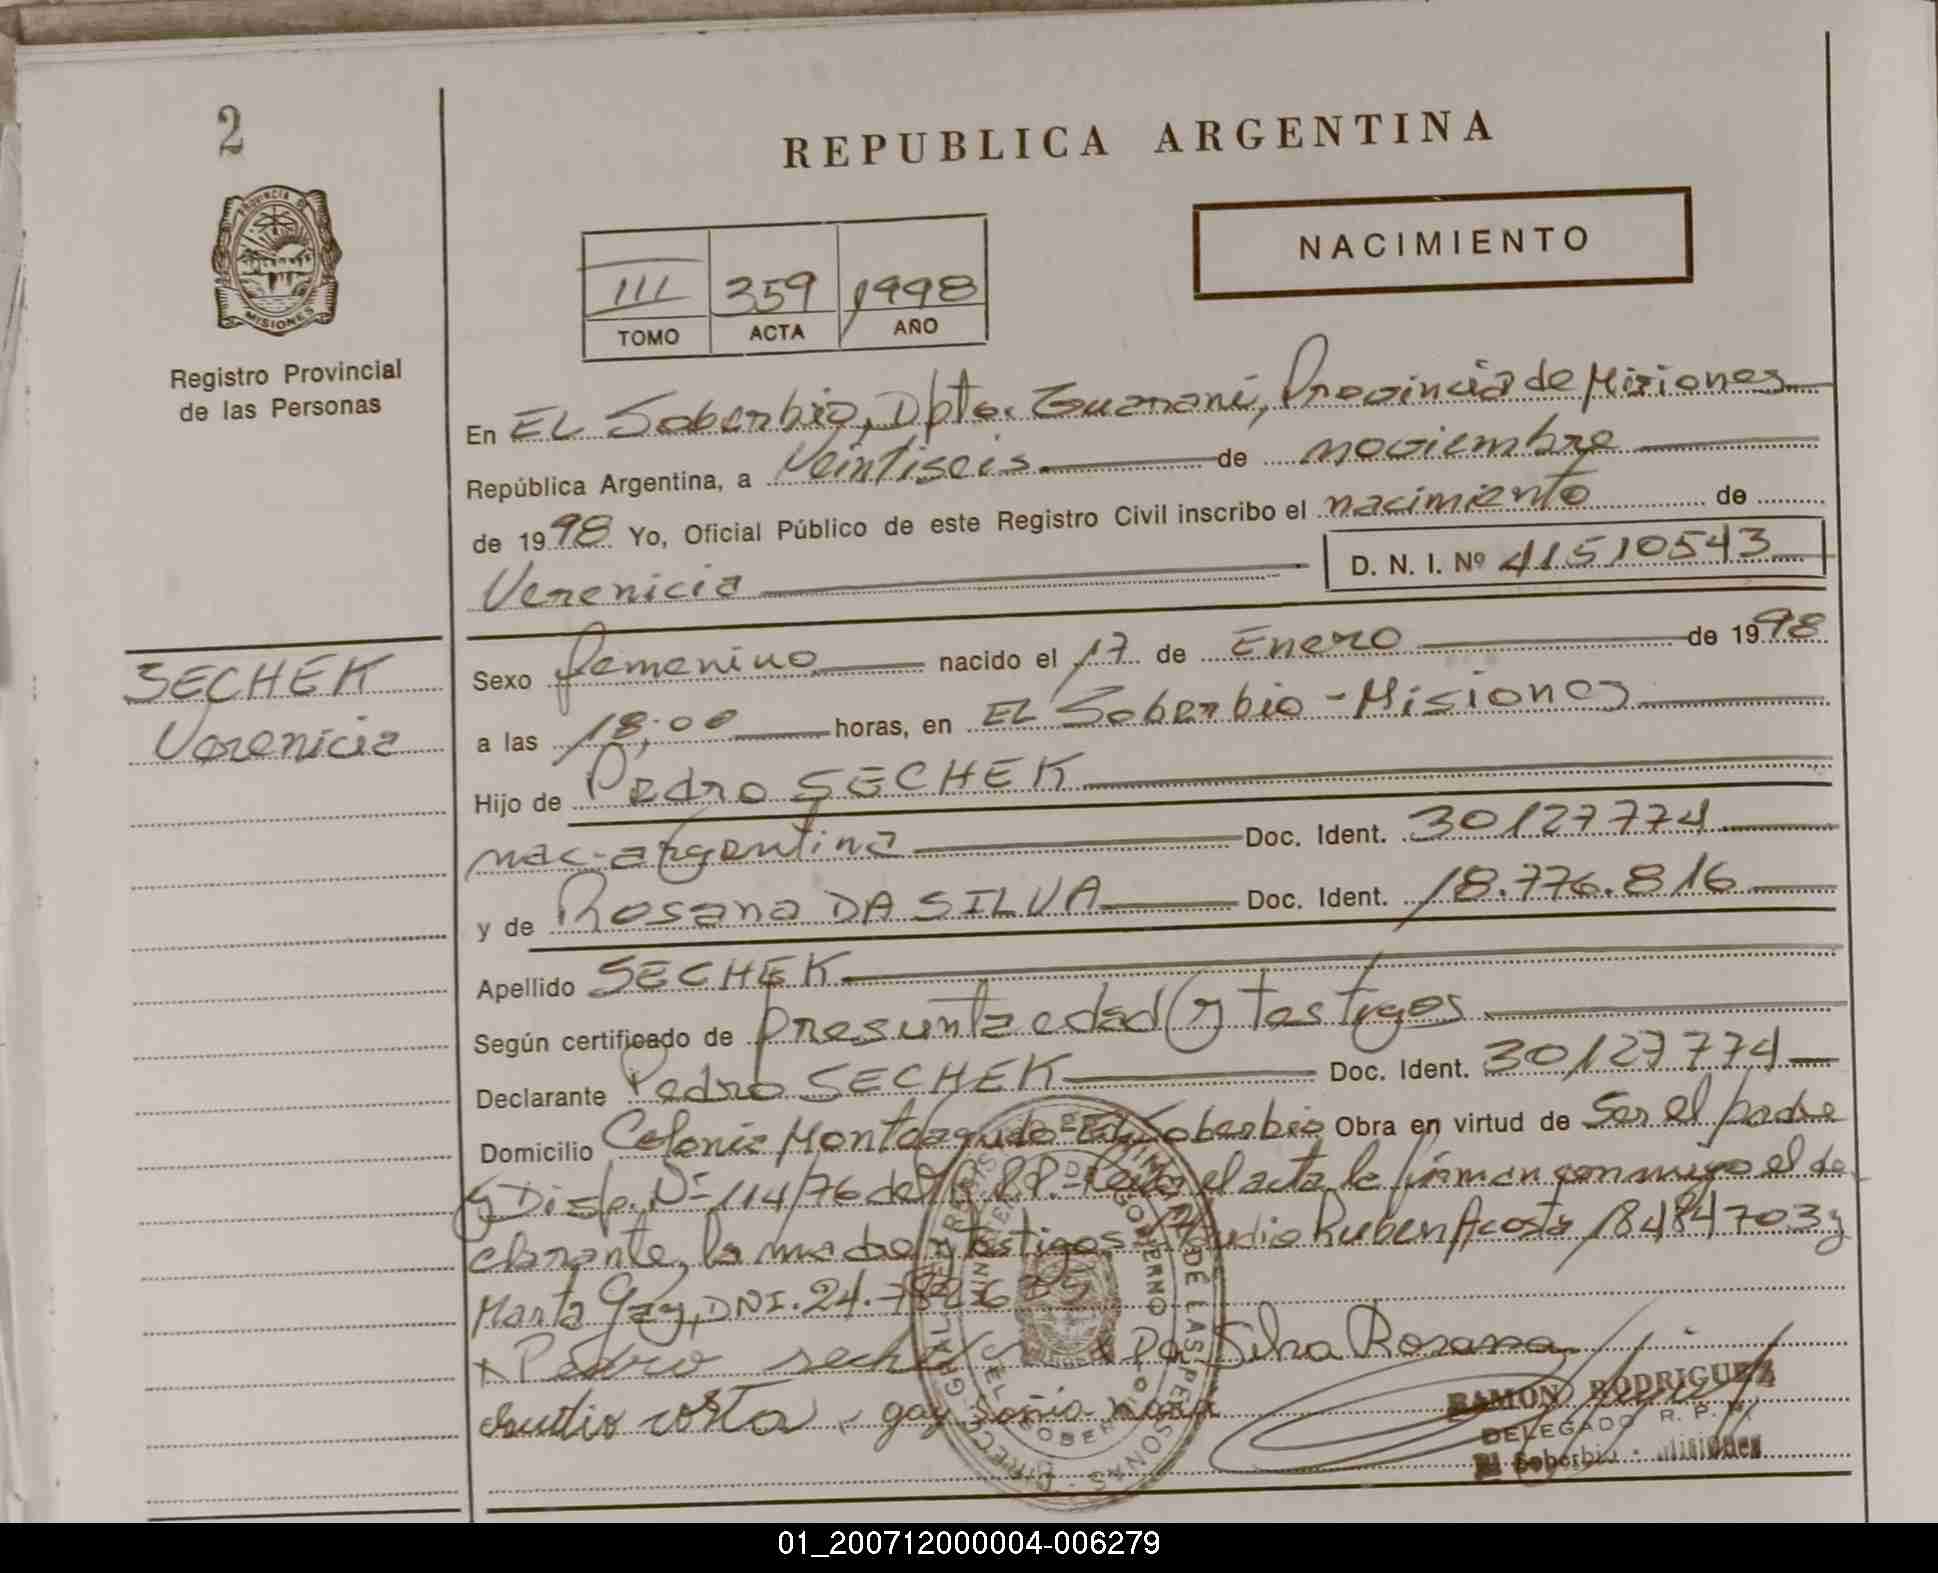 2
PROVINCIA DE
MISIONES
Registro Provincial
de las Personas
REPUBLICA ARGENTINA
NACIMIENTO
III 359 1998
TOMO ACTA AÑO
En EL Soberbio, Dpto. Guaraní, Provincia de Misiones
República Argentina, a Veintiseis de noviembre
de 1998 Yo, Oficial Público de este Registro Civil inscribo el nacimiento de
Verenicia D. N. I. Nº 41510543
SECHEK
Verenicia
Sexo femenino nacido el 17 de Enero de 1998
a las 18,00 horas, en EL Soberbio - Misiones
Hijo de Pedro SECHEK
nac. argentina Doc. Ident. 30127774
y de Rosana DA SILVA Doc. Ident. 18.776.816
Apellido SECHEK
Según certificado de presunta edad y testigos
Declarante Pedro SECHEK Doc. Ident. 30127774
Domicilio Colonia Monteagudo El Soberbio Obra en virtud de Ser el padre
y Disp. Nº 114/76 del el acta la firman conmigo el de
clarante, la madre y testigos Claudio Ruben Acosta 18484703 y
Marta Gay, DNI. 24.
x Pedro x Da Silva Rosana
claudio costa gay Soñia
RAMON RODRIGUEZ
DELEGADO R. P. P.
El Soberbio - Misiones
01_200712000004-006279